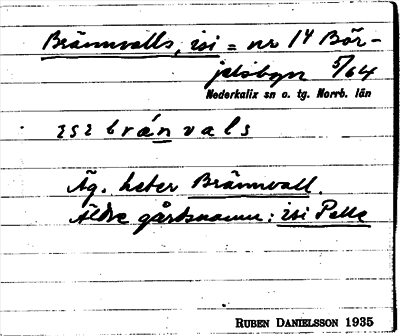 Brännvalls, isi = nr 14 Bör-
jelsbyn 5/64
Nederkalix sn o. tg. Norrb. län
ɩsɩ bränvals
Äg. heter Brännvall.
Äldre gårdsnamn: isi Pelle
RUBEN DANIELSSON 1935